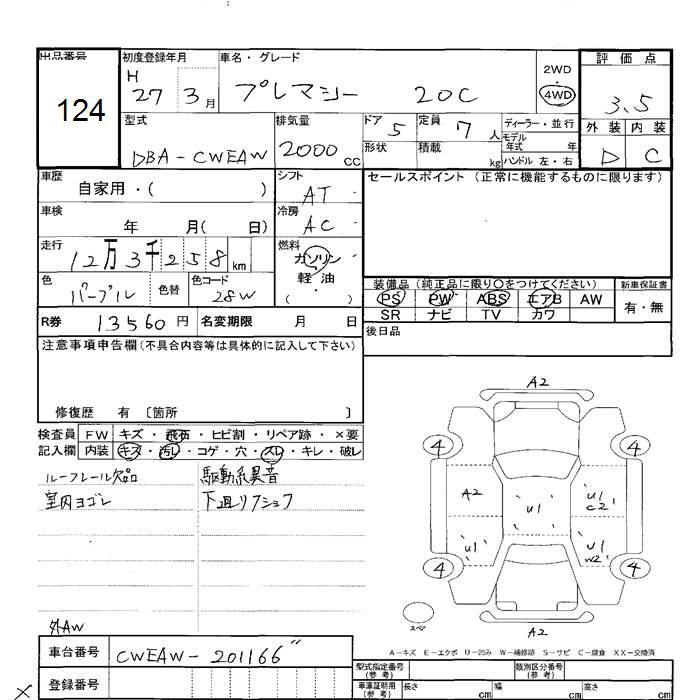 出品番号 初度登録年月 車名・グレード 2WD 評価点
124
H 27 3月 プレマシー 20C 4WD 3.5
型式 排気量 ドア 定員 ディーラー・並行 外装 内装
DBA-CWEAW 2000cc 5 7人 モデル年式 年 D C
形状 積載 kg ハンドル 左・右
車歴 シフト セールスポイント (正常に機能するものに限ります)
自家用・( ) AT
車検 冷房
年 月( 日) AC
走行 燃料
12万3千258km ガソリン
色 色替 色コード 軽・油
パープル 28W ( )
装備品(純正品に限り○をつけてください) 新車保証書
PS PW ABS エアB AW 有・無
SR ナビ TV カワ
R券 13560円 名変期限 月 日
後日品
注意事項申告欄(不具合内容等は具体的に記入して下さい)
修復歴 有 〔箇所 〕
検査員 FW キズ・飛石・ヒビ割・リペア跡・×要
記入欄 内装 キズ・汚レ・コゲ・穴・スレ・キレ・破レ
ルーフレール欠品 駆動系異音
室内ヨゴレ 下廻リクショフ
A2
4 4
A2 U1 U1 C2
U1 U1 W2
4 4
スペア
A2
外AW
A-キズ E-エクボ U-凹み W-補修跡 S-サビ C-腐食 XX-交換済
車台番号 CWEAW-201166"
登録番号
型式指定番号(参考) 類別区分番号(参考)
車庫証明用(参考) 長さ cm 幅 cm 高さ cm
×